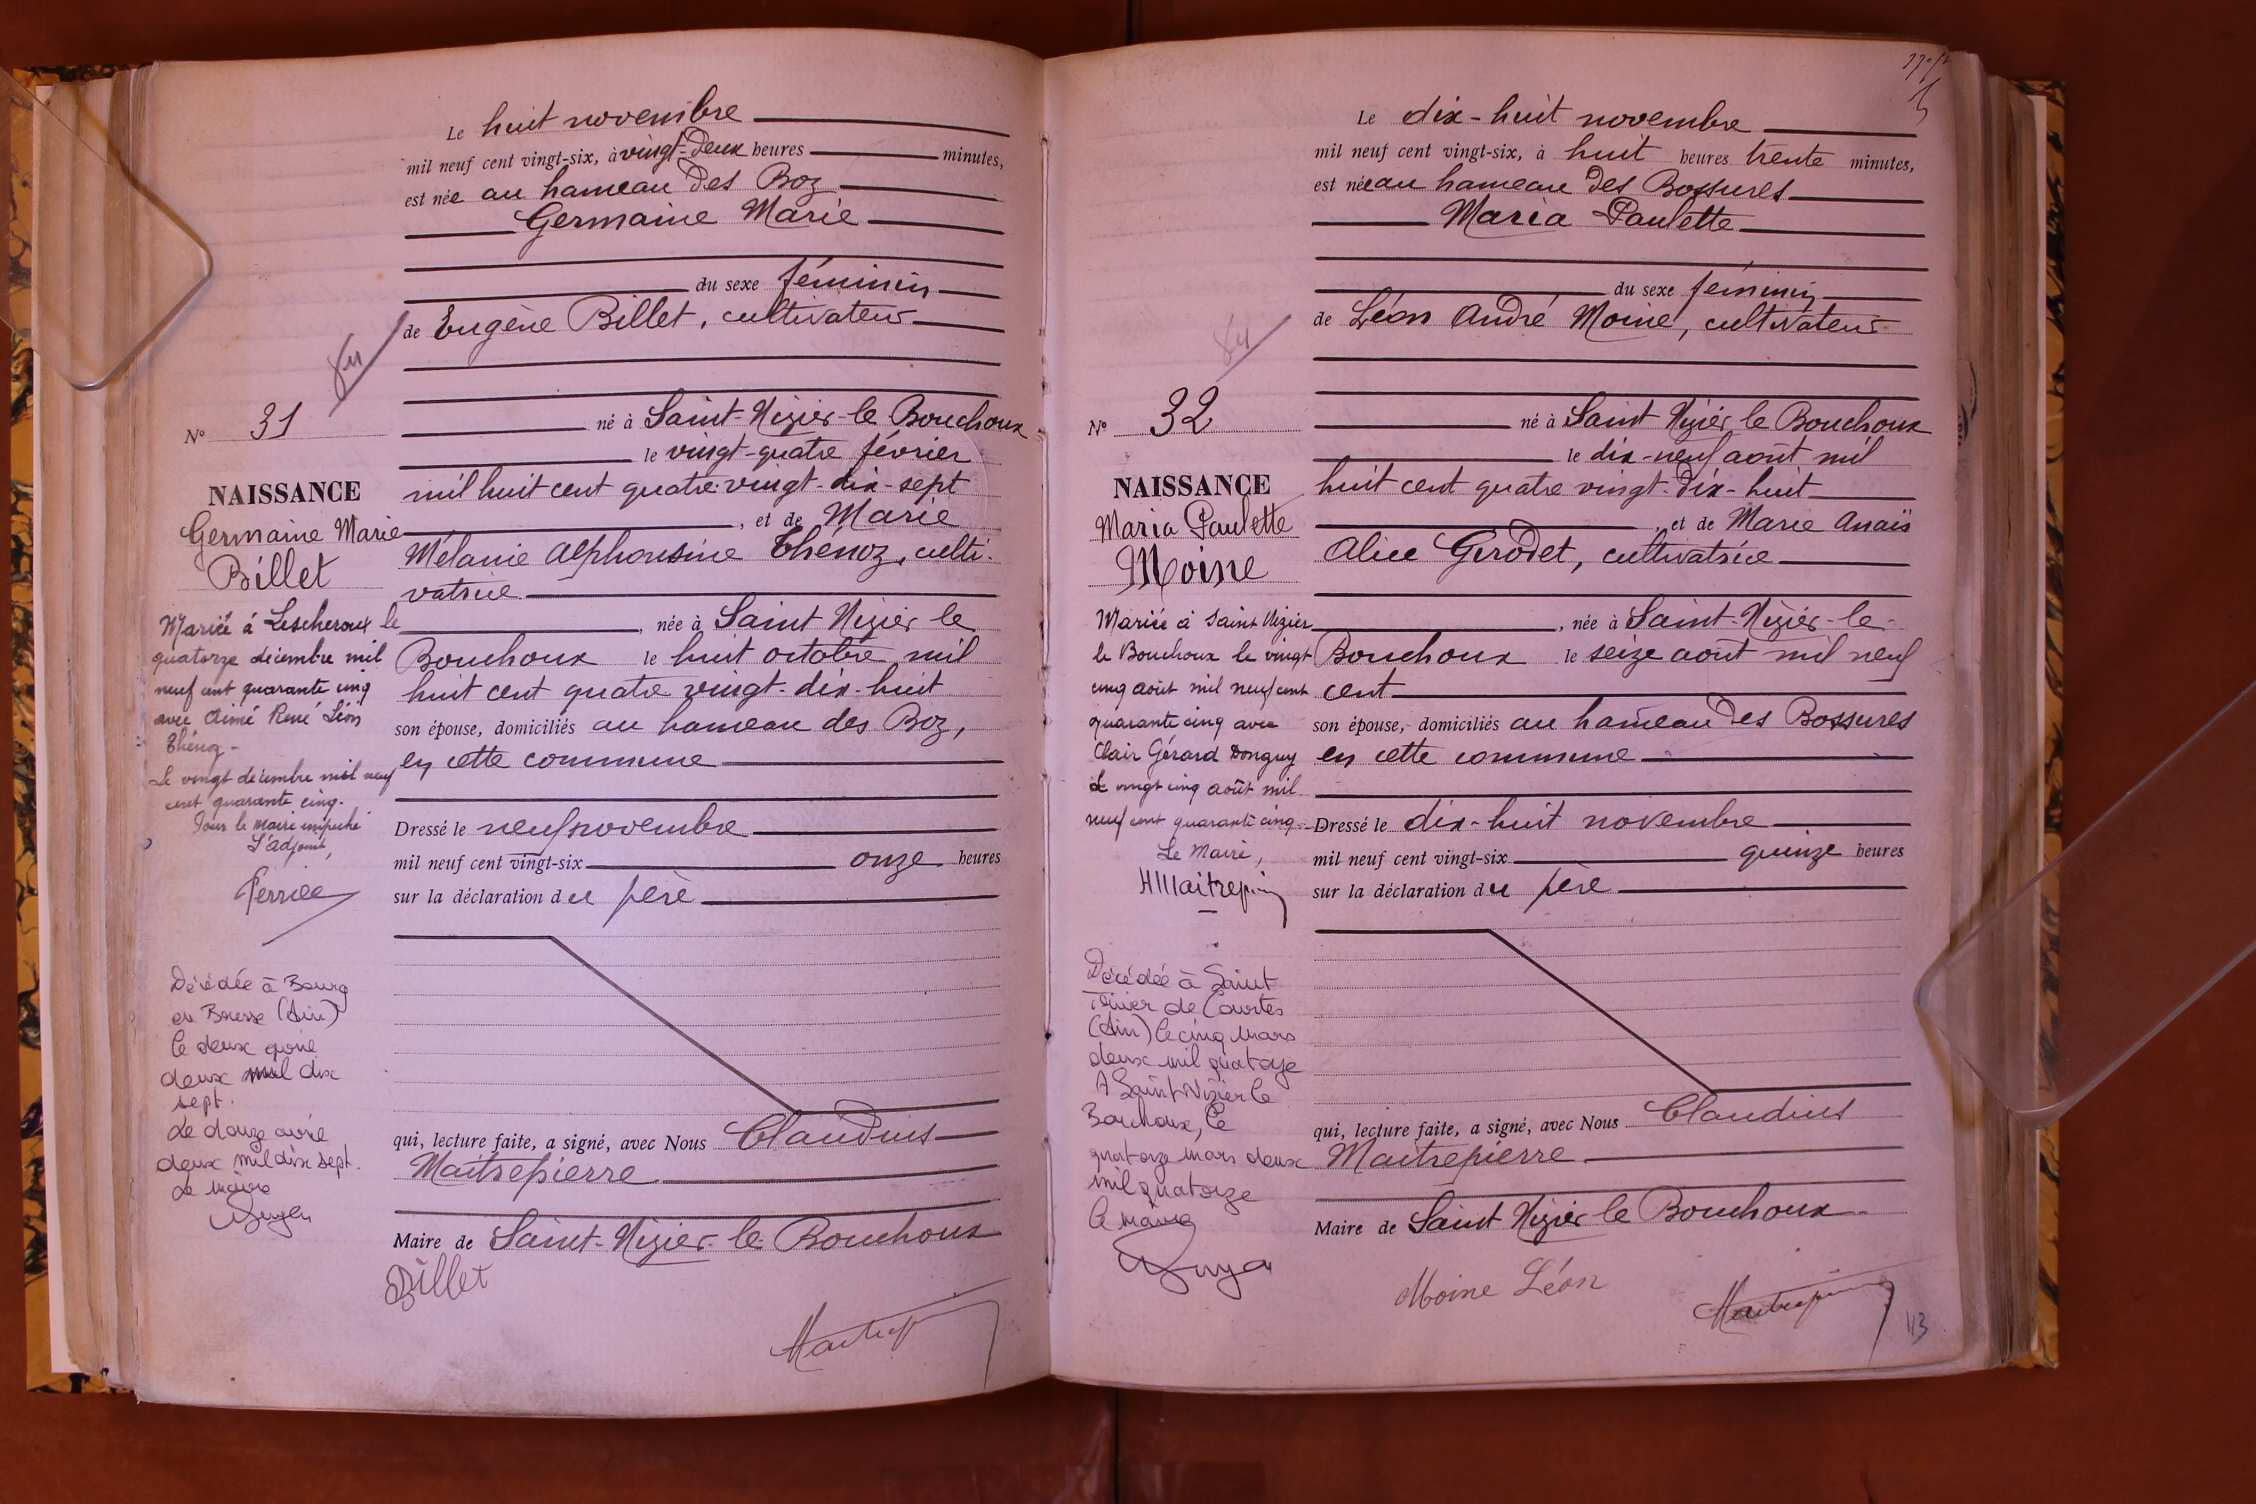 Le huit novembre
mil neuf cent vingt-six, à vingt-deux heures minutes,
est née au hameau des Boz
Germaine Marie
du sexe féminin
de Eugène Billet, cultivateur
né à Saint-Nizier-le Bouchoux
le vingt-quatre février
mil huit cent quatre-vingt-dix-sept
, et de Marie
Mélanie Alphonsine Thénoz, culti-
vatrice
, née à Saint Nizier le
Bouchoux le huit octobre mil
huit cent quatre vingt-dix-huit
son épouse, domiciliés au hameau des Boz,
en cette commune
Dressé le neuf novembre
mil neuf cent vingt-six onze heures
sur la déclaration du père
qui, lecture faite, a signé, avec Nous Claudius
Maitrepierre
Maire de Saint-Nizier-le-Bouchoux
Billet
N° 31
NAISSANCE
Germaine Marie
Billet
Mariée à Lescheroux le
quatorze décembre mil
neuf cent quarante cinq
avec Aimé René Léon
Thénoz -
Le vingt décembre mil neuf
cent quarante cinq.
Pour le Maire empêché
L'adjoint,
Décédée à Bourg
en Bresse (Ain)
le deux avril
deux mil dix
sept.
Le douze avril
deux mil dix sept.
Le Maire
Le dix-huit novembre
mil neuf cent vingt-six, à huit heures trente minutes,
est née au hameau des Bossures
Maria Paulette
du sexe féminin
de Léon André Moine, cultivateur
né à Saint Nizier le Bouchoux
le dix-neuf août mil
huit cent quatre vingt-dix-huit
, et de Marie Anaïs
Alice Girodet, cultivatrice
, née à Saint-Nizier-le-
Bouchoux le seize août mil neuf
cent
son épouse, domiciliés au hameau des Bossures
en cette commune
Dressé le dix-huit novembre
mil neuf cent vingt-six quinze heures
sur la déclaration du père
qui, lecture faite, a signé, avec Nous Claudius
Maitrepierre
Maire de Saint Nizier le Bouchoux
Moine Léon
43
N° 32
NAISSANCE
Maria Paulette
Moine
Mariée à Saint Nizier
le Bouchoux le vingt
cinq août mil neuf cent
quarante cinq avec
Clair Gérard Donguy
Le vingt cinq août mil
neuf cent quarante cinq.
Le Maire,
Décédée à Saint
Trivier de Courtes
(Ain) le cinq mars
deux mil quatorze
A Saint Nizier le
Bouchoux, le
quatorze mars deux
mil quatorze
le Maire